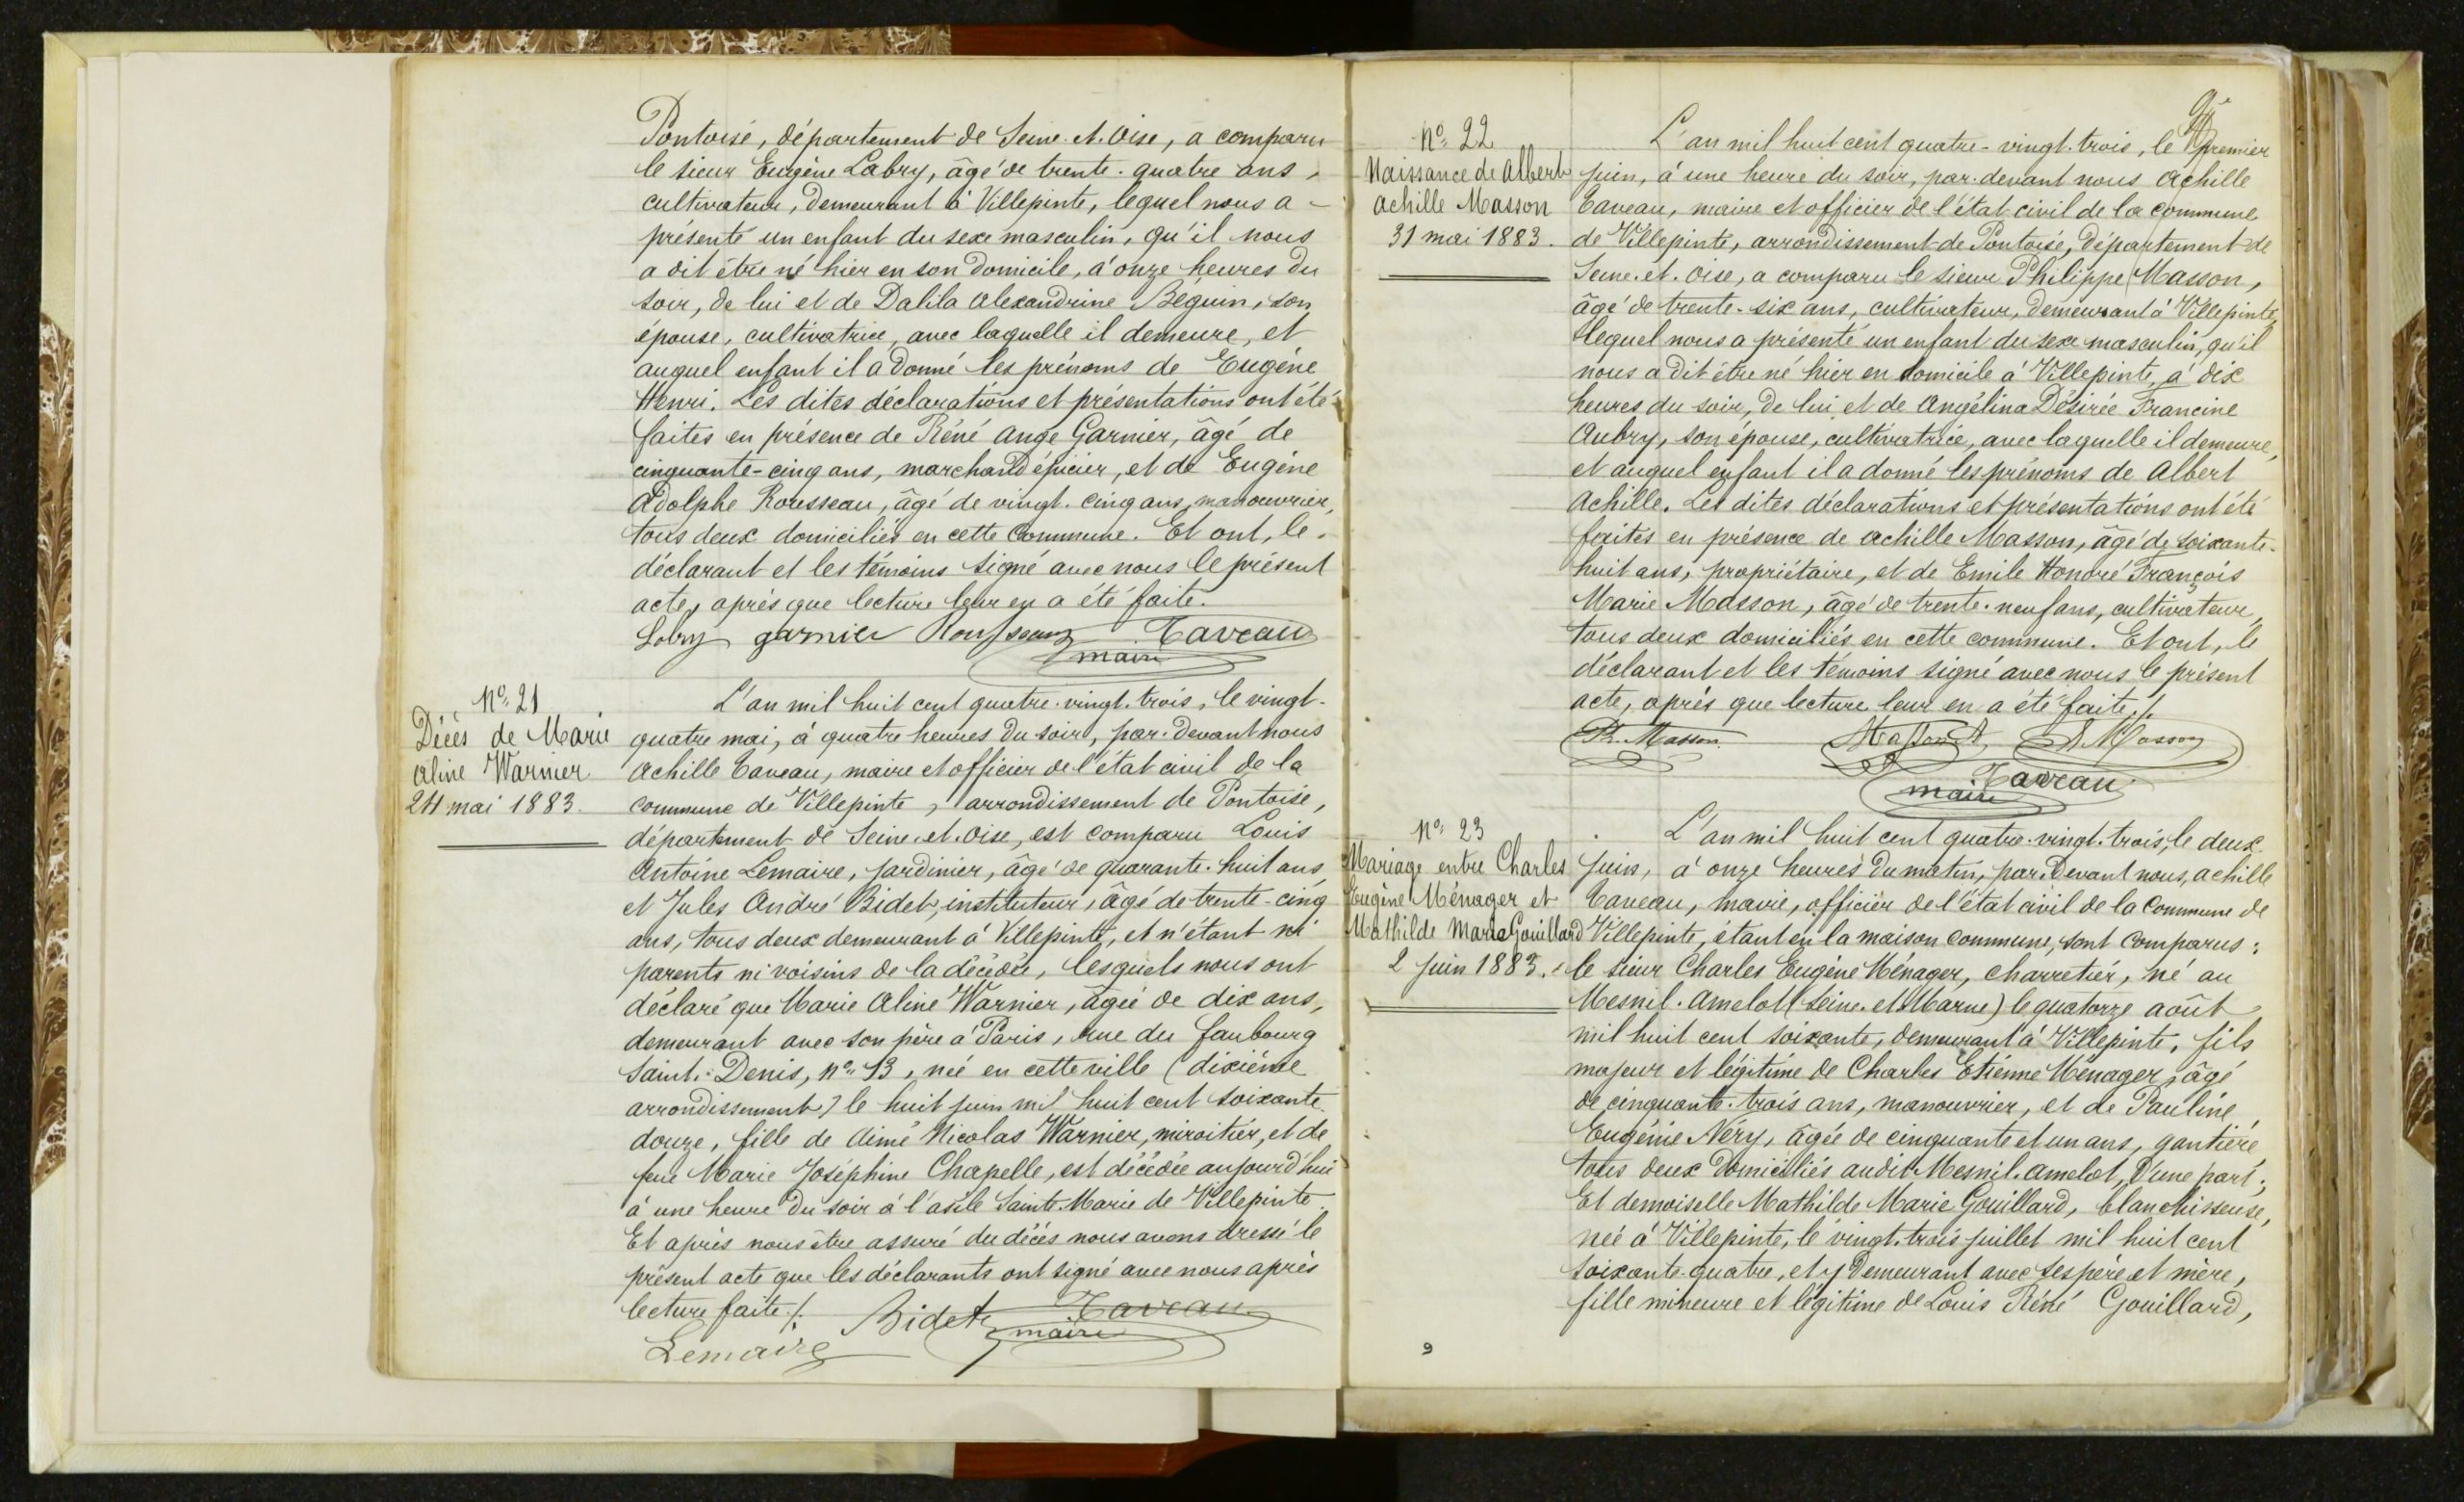 Pontoise, département de Seine-et-Oise, a comparu
le sieur Eugène Labry, âgé de trente-quatre ans,
cultivateur, demeurant à Villepinte, lequel nous a
présenté un enfant du sexe masculin, qu'il nous
a dit être né hier en son domicile, à onze heures du
soir, de lui et de Dalila Alexandrine Béguin, son
épouse, cultivatrice, avec laquelle il demeure, et
auquel enfant il a donné les prénoms de Eugène
Henri. Les dites déclarations et présentations ont été
faites en présence de Réné Ange Garnier, âgé de
cinquante-cinq ans, marchand épicier, et de Eugène
Adolphe Rousseau, âgé de vingt-cinq ans, manouvrier,
tous deux domiciliés en cette commune. Et ont, le
déclarant et les témoins signé avec nous le présent
acte, après que lecture leur en a été faite.
Labry garnier Rousseau Taveau
maire
N° 21
Décès de Marie
Aline Warnier
24 mai 1883.
L'an mil huit cent quatre-vingt-trois, le vingt-
quatre mai, à quatre heures du soir, par-devant nous
Achille Taveau, maire et officier de l'état civil de la
commune de Villepinte, arrondissement de Pontoise,
département de Seine-et-Oise, est comparu Louis
Antoine Lemaire, jardinier, âgé de quarante-huit ans,
et Jules André Bidet, instituteur, âgé de trente-cinq
ans, tous deux demeurant à Villepinte, et n'étant ni
parents ni voisins de la décédée, lesquels nous ont
déclaré que Marie Aline Warnier, âgée de dix ans,
demeurant avec son père à Paris, rue du faubourg
Saint-Denis, n° 13, née en cette ville (dixième
arrondissement) le huit juin mil huit cent soixante-
douze, fille de Aimé Nicolas Warnier, miroitier, et de
feue Marie Joséphine Chapelle, est décédée aujourd'hui
à une heure du soir à l'asile Sainte-Marie de Villepinte.
Et après nous être assuré du décès nous avons dressé le
présent acte que les déclarants ont signé avec nous après
lecture faite ./. Bidet Taveau
maire
Lemaire
9
N° 22
Naissance de Albert
Achille Masson
31 mai 1883.
L'an mil huit cent quatre-vingt-trois, le premier
juin, à une heure du soir, par-devant nous Achille
Taveau, maire et officier de l'état civil de la commune
de Villepinte, arrondissement de Pontoise, département de
Seine-et-Oise, a comparu le sieur Philippe Masson,
âgé de trente-six ans, cultivateur, demeurant à Villepinte,
lequel nous a présenté un enfant du sexe masculin, qu'il
nous a dit être né hier en domicile à Villepinte, à dix
heures du soir, de lui et de Angélina Désirée Francine
Aubry, son épouse, cultivatrice, avec laquelle il demeure,
et auquel enfant il a donné les prénoms de Albert
Achille. Les dites déclarations et présentations ont été
faites en présence de Achille Masson, âgé de soixante-
huit ans, propriétaire, et de Emile Honoré François
Marie Masson, âgé de trente-neuf ans, cultivateur,
tous deux domiciliés en cette commune. Et ont, le
déclarant et les témoins signé avec nous le présent
acte, après que lecture leur en a été faite ./.
Ph. Masson Masson A. Masson
Taveau
maire
N° 23
Mariage entre Charles
Eugène Ménager et
Mathilde Marie Gouillard
2 juin 1883.
L'an mil huit cent quatre-vingt-trois, le deux
juin, à onze heures du matin, par-devant nous, Achille
Taveau, maire, officier de l'état civil de la commune de
Villepinte, étant en la maison commune, sont comparus :
le sieur Charles Eugène Ménager, charretier, né au
Mesnil-Amelot (Seine-et-Marne) le quatorze août
mil huit cent soixante, demeurant à Villepinte, fils
majeur et légitime de Charles Etienne Ménager, âgé
de cinquante-trois ans, manouvrier, et de Pauline
Eugénie Néry, âgée de cinquante et un ans, gantière,
tous deux domiciliés audit Mesnil-Amelot, d'une part ;
Et demoiselle Mathilde Marie Gouillard, blanchisseuse,
née à Villepinte, le vingt-trois juillet mil huit cent
soixante-quatre, et y demeurant avec ses père et mère,
fille mineure et légitime de Louis Réné Gouillard,
9